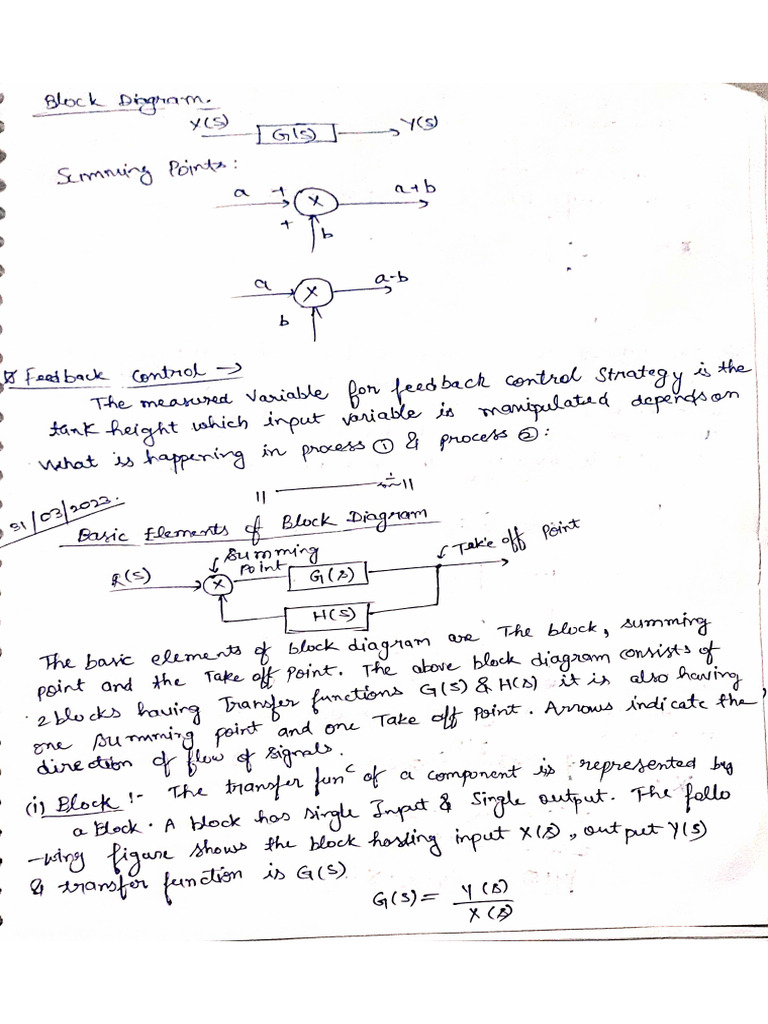 Block Diagram.
X(S) G(S) Y(S)
Summing Points:
a + X a+b
+
b
a X a-b
b
Feedback Control →
The measured variable for feedback control strategy is the
tank height which input variable is manipulated depends on
what is happening in process ① & process ②:
11 ——— 11
31/03/2023.
Basic Elements of Block Diagram
Summing Point
Take off Point
R(S) X G(s)
H(S)
The basic elements of block diagram are The block, summing
point and the Take off Point. The above block diagram consists of
2 blocks having Transfer functions G(S) & H(s) it is also having
one summing point and one Take off Point. Arrows indicate the
direction of flow of signals.
(i) Block :- The transfer funᶜ of a component is represented by
a Block. A block has single Input & Single output. The follo
-wing figure shows the block hasting input X(s), output Y(s)
& transfer function is G(S).
G(S) = Y(s)/X(s)